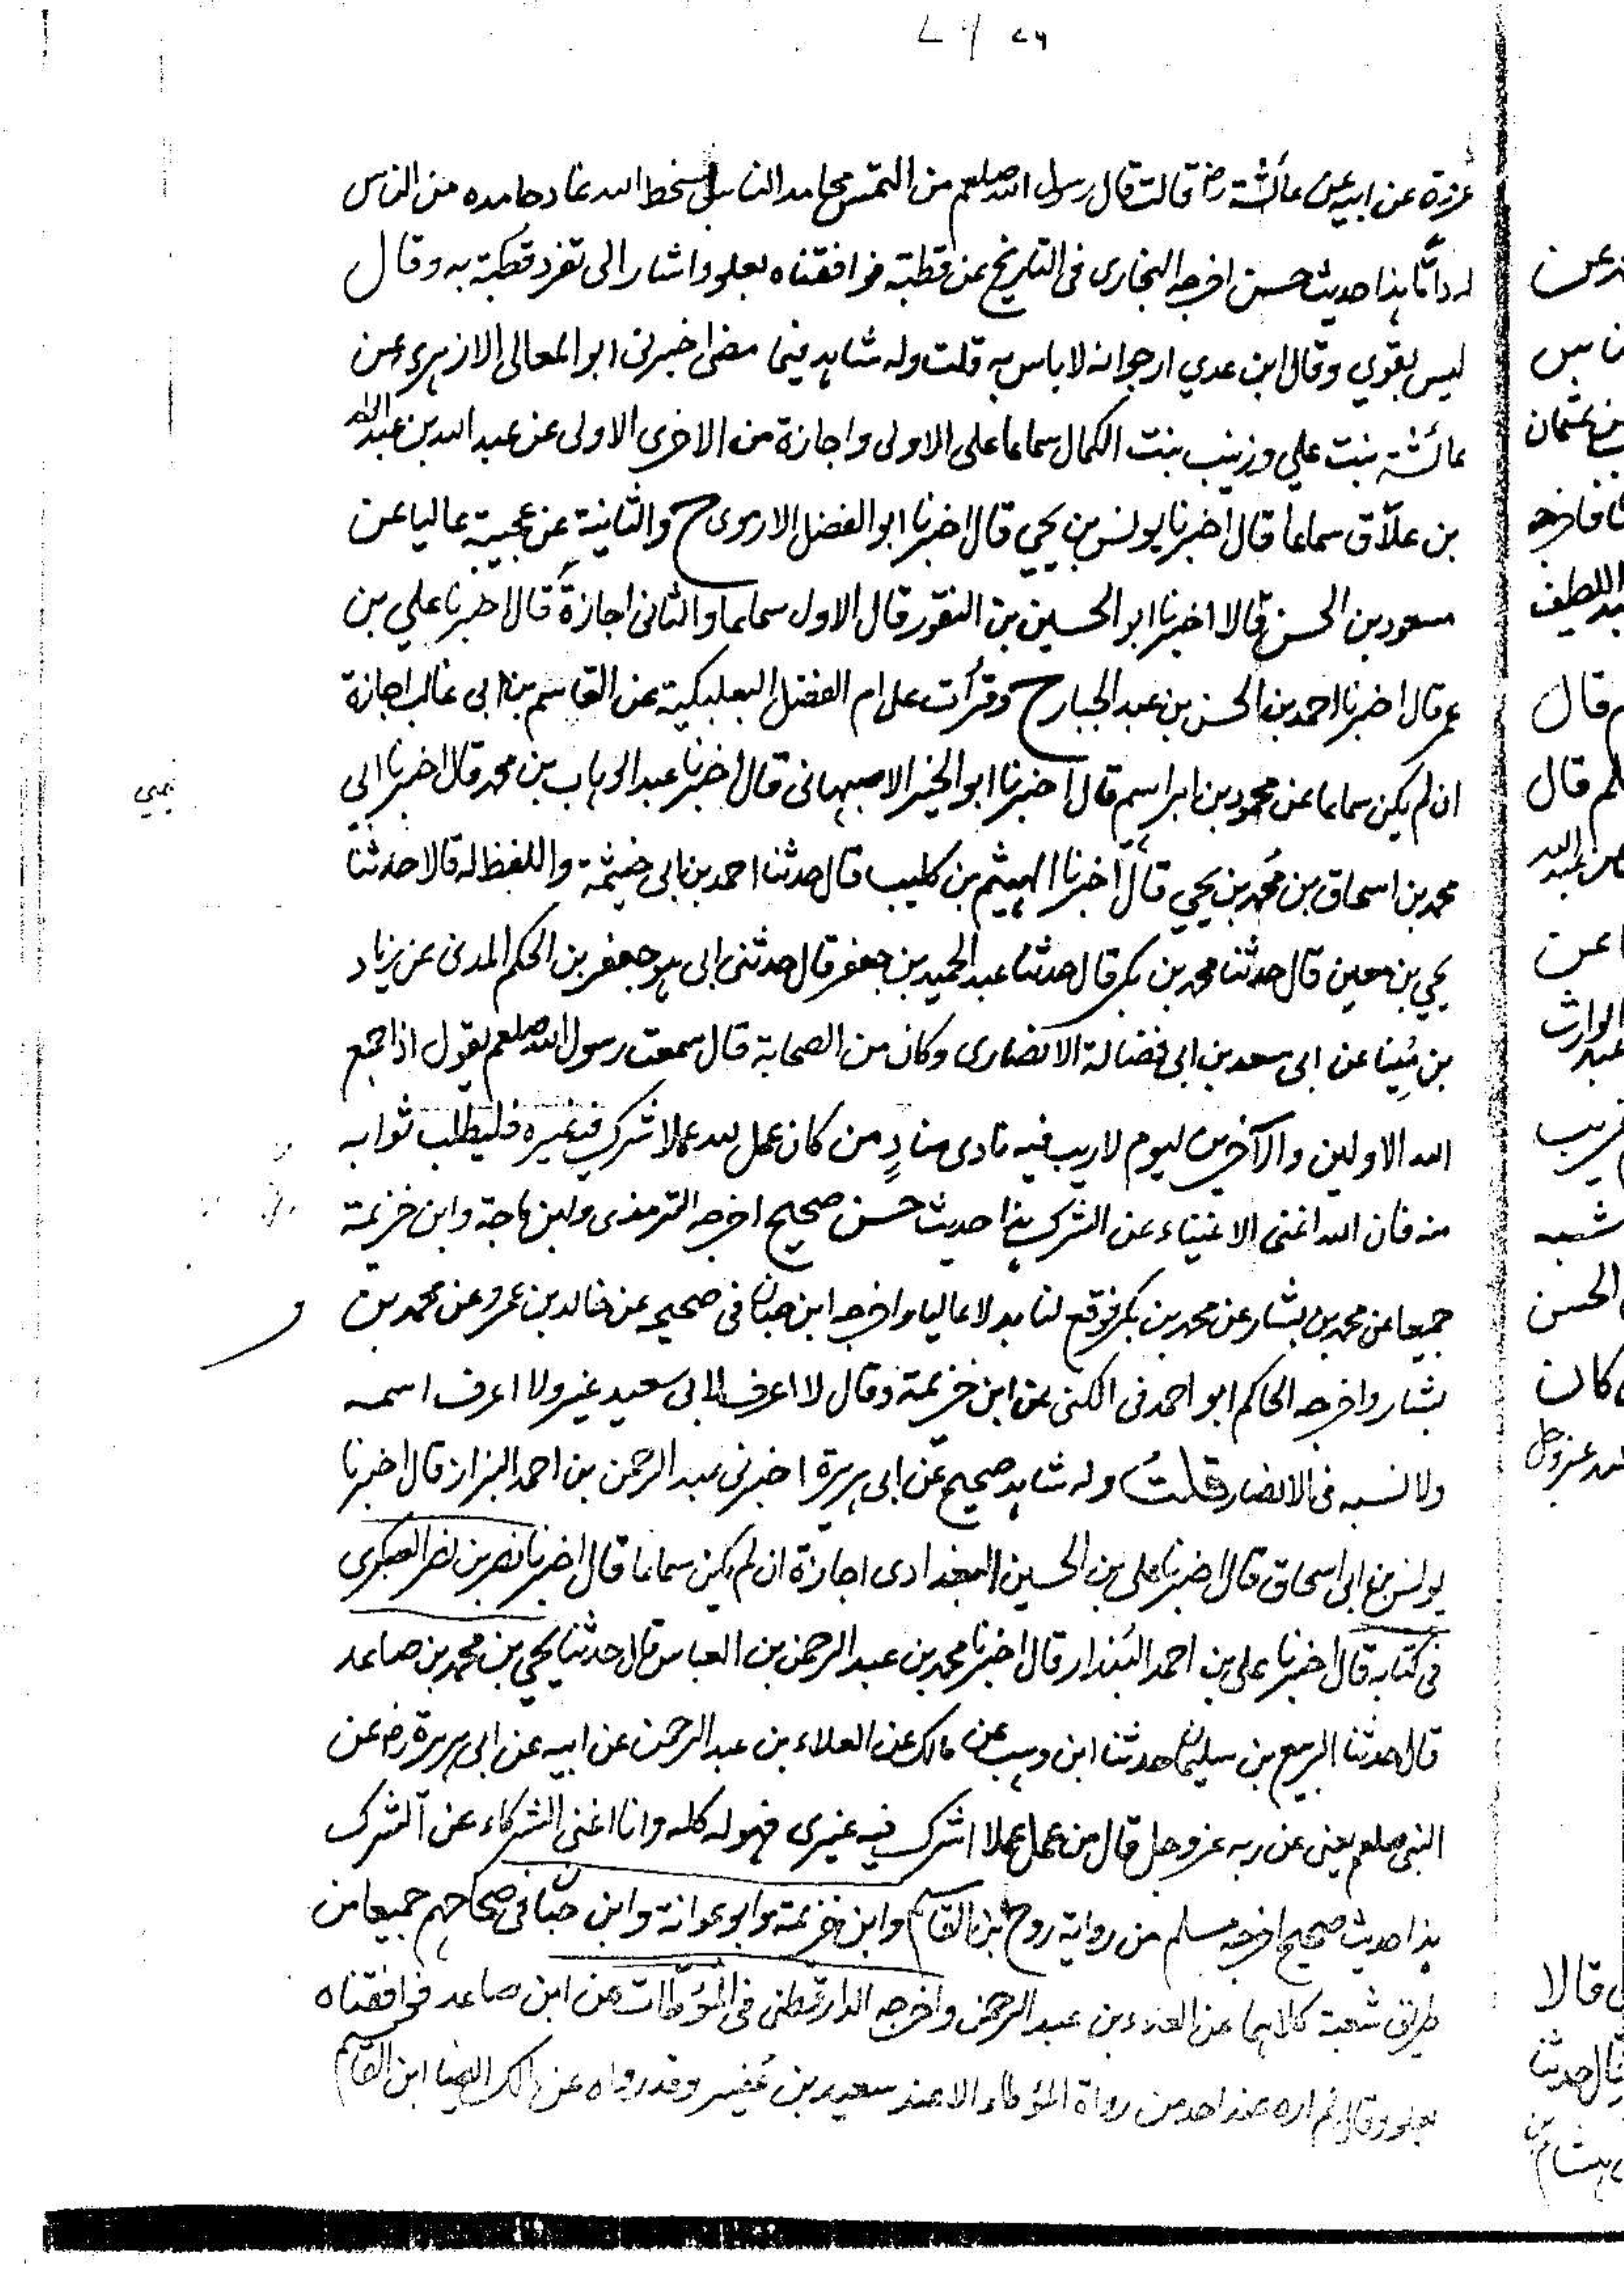 عروة عن ابيه عن عائشة رض قالت قال رسول الله صلعم من التمس محامد الناس بسخط الله عاد حامده من الناس
له ذامّا هذا حديث حسن اخرجه البخارى فى التاريخ عن قطبة فوافقناه بعلو واشار الى تفرد قطبة به وقال
ليس بقوي وقال ابن عدي ارجو انه لا باس به قلت وله شاهد فيما مضى اخبرنى ابو المعالى الازهرى عن
عائشة بنت علي وزينب بنت الكمال سماعا على الاولى واجازة من الاخرى الاولى عن عبد الله بن عبد الله
بن علاّق سماعا قال اخبرنا يونس بن يحيي قال اخبرنا ابو الفضل الارموى ح والثانية عن عجيبة عاليا عن
مسعود بن الحسن قالا اخبرنا ابو الحسين بن النقور قال الاول سماعا والثانى اجازة قال اخبرنا علي بن
عمر قال اخبرنا احمد بن الحسن بن عبد الجبار ح وقرأت على ام الفضل البعلبكية عن القاسم بن ابى غالب اجازة
ان لم يكن سماعا عن محمود بن ابراهيم قال اخبرنا ابو الخير الاصبهانى قال اخبرنا عبد الوهاب بن محمد قال اخبرنا ابى
محمد بن اسحاق بن محمد بن يحيي قال اخبرنا الهيثم بن كليب قال حدثنا احمد بن ابى خيثمة واللفظ له قالا حدثنا
يحيي بن معين قال حدثنا محمد بن بكر قال حدثنا عبد الحميد بن جعفر قال حدثنى ابى هو جعفر بن الحكم المدنى عن زياد
بن مِينا عن ابى سعد بن ابى فضالة الانصارى وكان من الصحابة قال سمعت رسول الله صلعم يقول اذا جمع
الله الاولين والآخرين ليوم لا ريب فيه نادى منادٍ من كان عمل لله عملا اشرك فيه غيره فليطلب ثوابه
منه فان الله اغنى الاغنياء عن الشرك هذا حديث حسن صحيح اخرجه الترمذى وابن ماجة وابن خزيمة
جميعا عن محمد بن بشار عن محمد بن بكر فوقع لنا بدلا عاليا واخرجه ابن حبان فى صحيحه عن خالد بن عمرو عن محمد بن
بشار واخرجه الحاكم ابو احمد فى الكنى عن ابن خزيمة وقال لا اعرف لابى سعيد غيره ولا اعرف اسمه
ولا نسبه فى الانصار قلت وله شاهد صحيح عن ابى هريرة اخبرنى عبد الرحمن بن احمد البزاز قال اخبرنا
يونس بن ابى اسحاق قال اخبرنا على بن الحسين البغدادى اجازة ان لم يكن سماعا قال اخبرنا نصر بن نصر العكبرى
فى كتابه قال اخبرنا على بن احمد البُندار قال اخبرنا محمد بن عبد الرحمن بن العباس قال حدثنا يحيي بن محمد بن صاعد
قال حدثنا الربيع بن سليمان حدثنا ابن وهب عن مالك عن العلاء بن عبد الرحمن عن ابيه عن ابى هريرة رض عن
النبى صلعم يعنى عن ربه عز وجل قال من عمل عملا اشرك فيه غيرى فهو له كله وانا اغنى الشركاء عن الشرك
هذا حديث صحيح اخرجه مسلم من رواية روح بن القاسم وابن خزيمة وابو عوانة وابن حبان فى صحاحهم جميعا من
طريق شعبة كلاهما عن العلاء بن عبد الرحمن واخرجه الدارقطنى فى المؤطآت عن ابن صاعد فوافقناه
بعلو وقال لم اره عند احد من رواة المؤطا الا عند سعيد بن عُفير وقد رواه عن مالك ايضا ابن القاسم